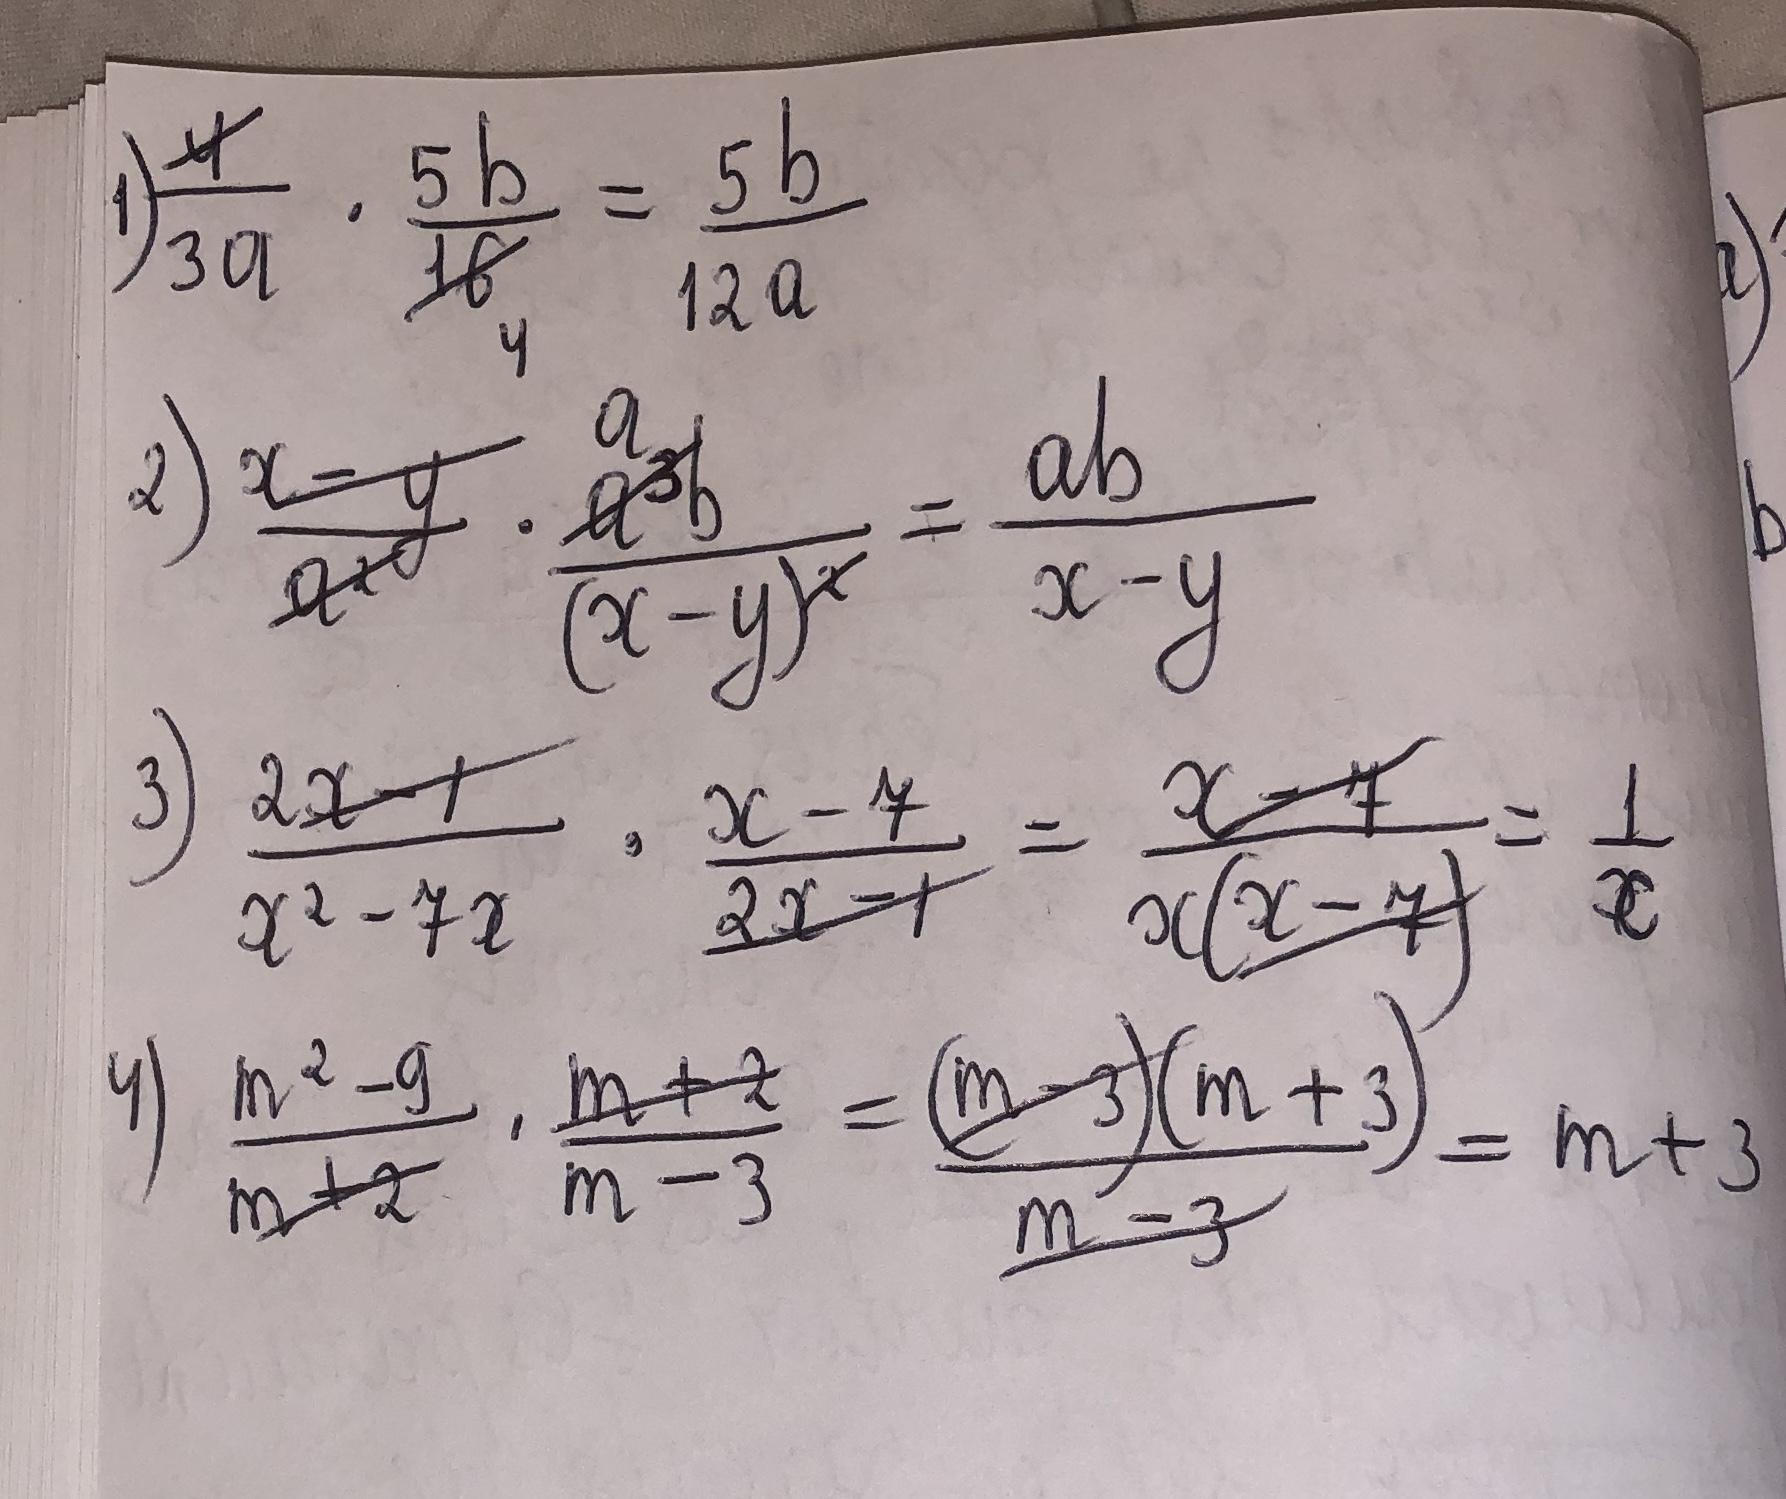 1) 4/3a · 5b/16 4 = 5b/12a
2) x-y/a² · a a³b/(x-y)² = ab/x-y
3) 2x-1/x²-7x · x-7/2x-1 = x-7/x(x-7) = 1/x
4) m²-9/m+2 · m+2/m-3 = (m-3)(m+3)/m-3 = m+3
a)
b